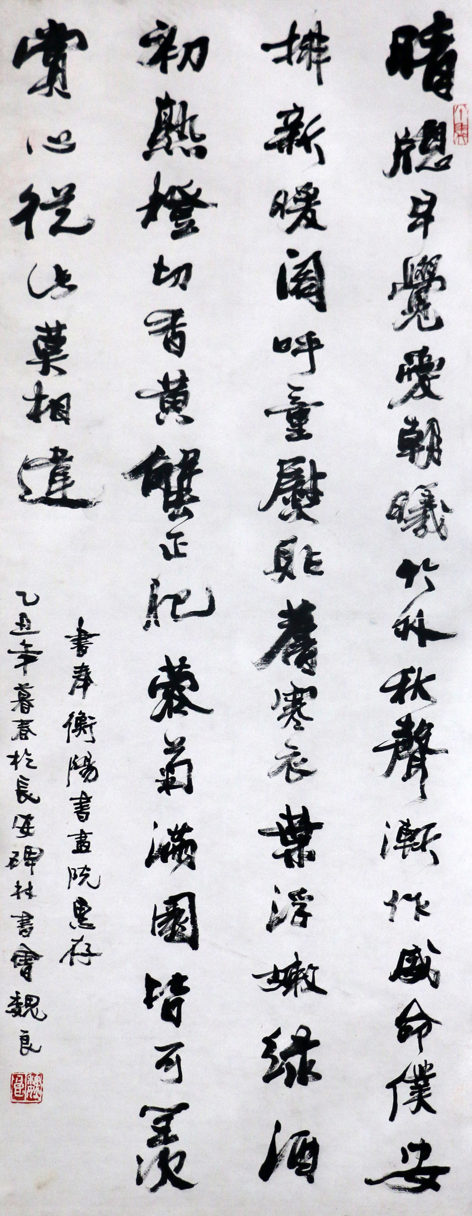 晴窗早覺愛朝曦竹外秋聲漸作威命僕安
排新暖閣呼童熨貼舊寒衣葉浮嫩綠酒
初熟橙切香黃蟹正肥蓉菊滿園皆可羨
賞心從此莫相違
書奉衡陽書畫院惠存
乙丑年暮春於長安碑林書會魏良